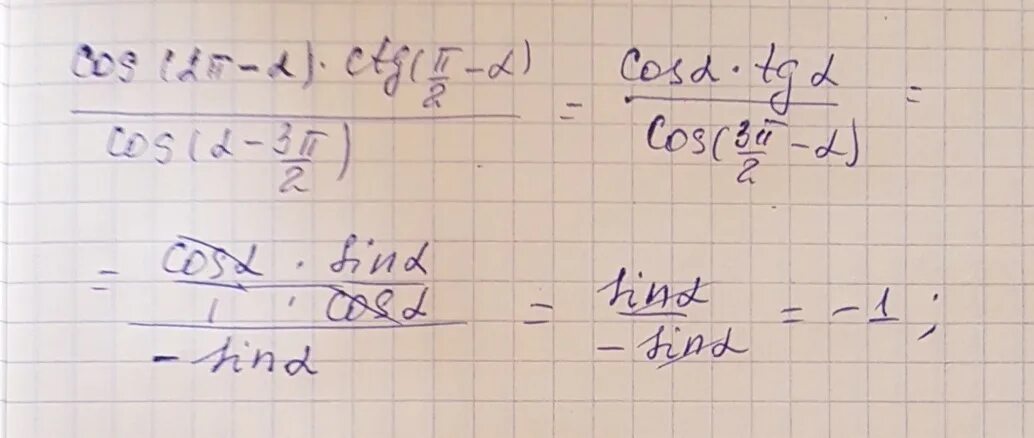 cos(2π-α)·ctg(π/2-α) / cos(α-3π/2) = cosα·tgα / cos(3π/2-α) =
= (cosα/1 · sinα/cosα) / -sinα = sinα / -sinα = -1;